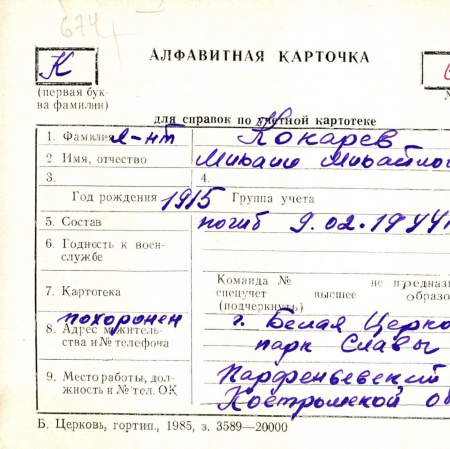 674
АЛФАВИТНАЯ КАРТОЧКА
К
(первая бук-
ва фамилии)
для справок по учетной картотеке
1. Фамилия л-нт Кокарев
2. Имя, отчество Михаил Михайло
3. 4.
Год рождения 1915 Группа учета
5. Состав погиб 9.02.1944
6. Годность к воен-
службе
7. Картотека
Команда № не предназ
спецучет высшее образо
(подчеркнуть)
похоронен г. Белая Церко
8. Адрес жительст-
ва и № телефона парк Славы
9. Место работы, дол- Парфеньевский
жность и № тел. ОК Костромской об
Б. Церковь, гортип., 1985, з. 3589—20000